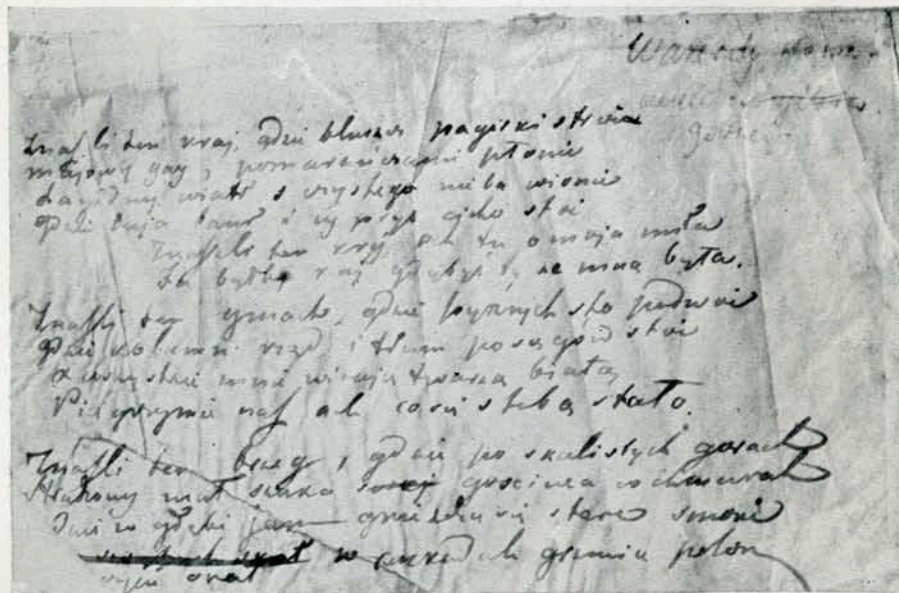 Znaszli ten kraj, gdzie bluszcz pagórki stroi
majowy gay, pomarańczami płonie
Łagodny wiatr z czystego nieba wionie
gdzie buja laur i cyprys cicho stoi
Znaszli ten kraj, ach tu o moja miła
Tu byłby raj gdybyś ty ze mną była.
Znaszli ten gmach, gdzie pysznych sto podwoi
gdzie kolumn rząd i tłum posągów stoi
a wszystkie mnie witają twarzą białą
Pielgrzymie nasz ach co się z tobą stało.
Znaszli ten brzeg, gdzie po skalistych gorach
muł szuka gościńca w chmurach
Gdzie w głębi jam gnieżdżą się stare
w
skał